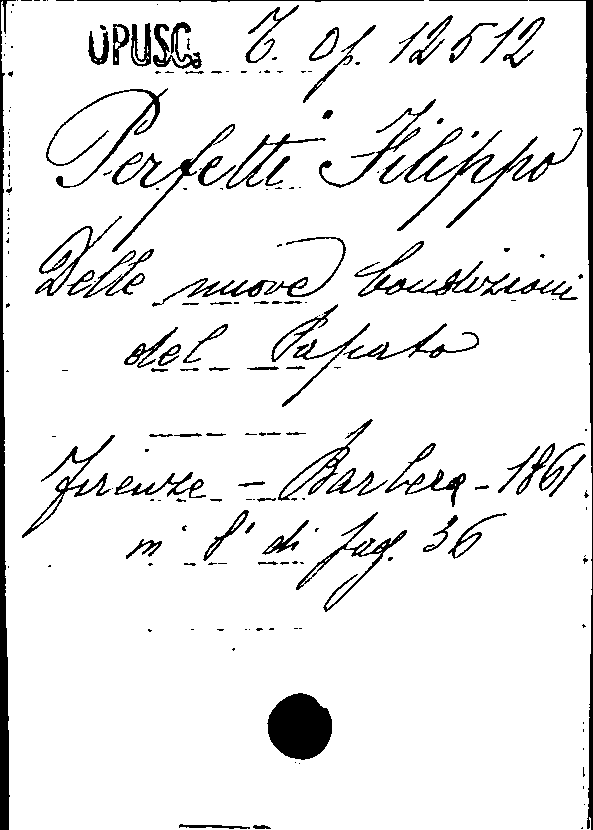 OPUSC. T. Op. 12512
Perfetti Filippo
Delle nuove Condizioni
del Papato
Firenze - Barbera - 1861
in 8° di pag. 36